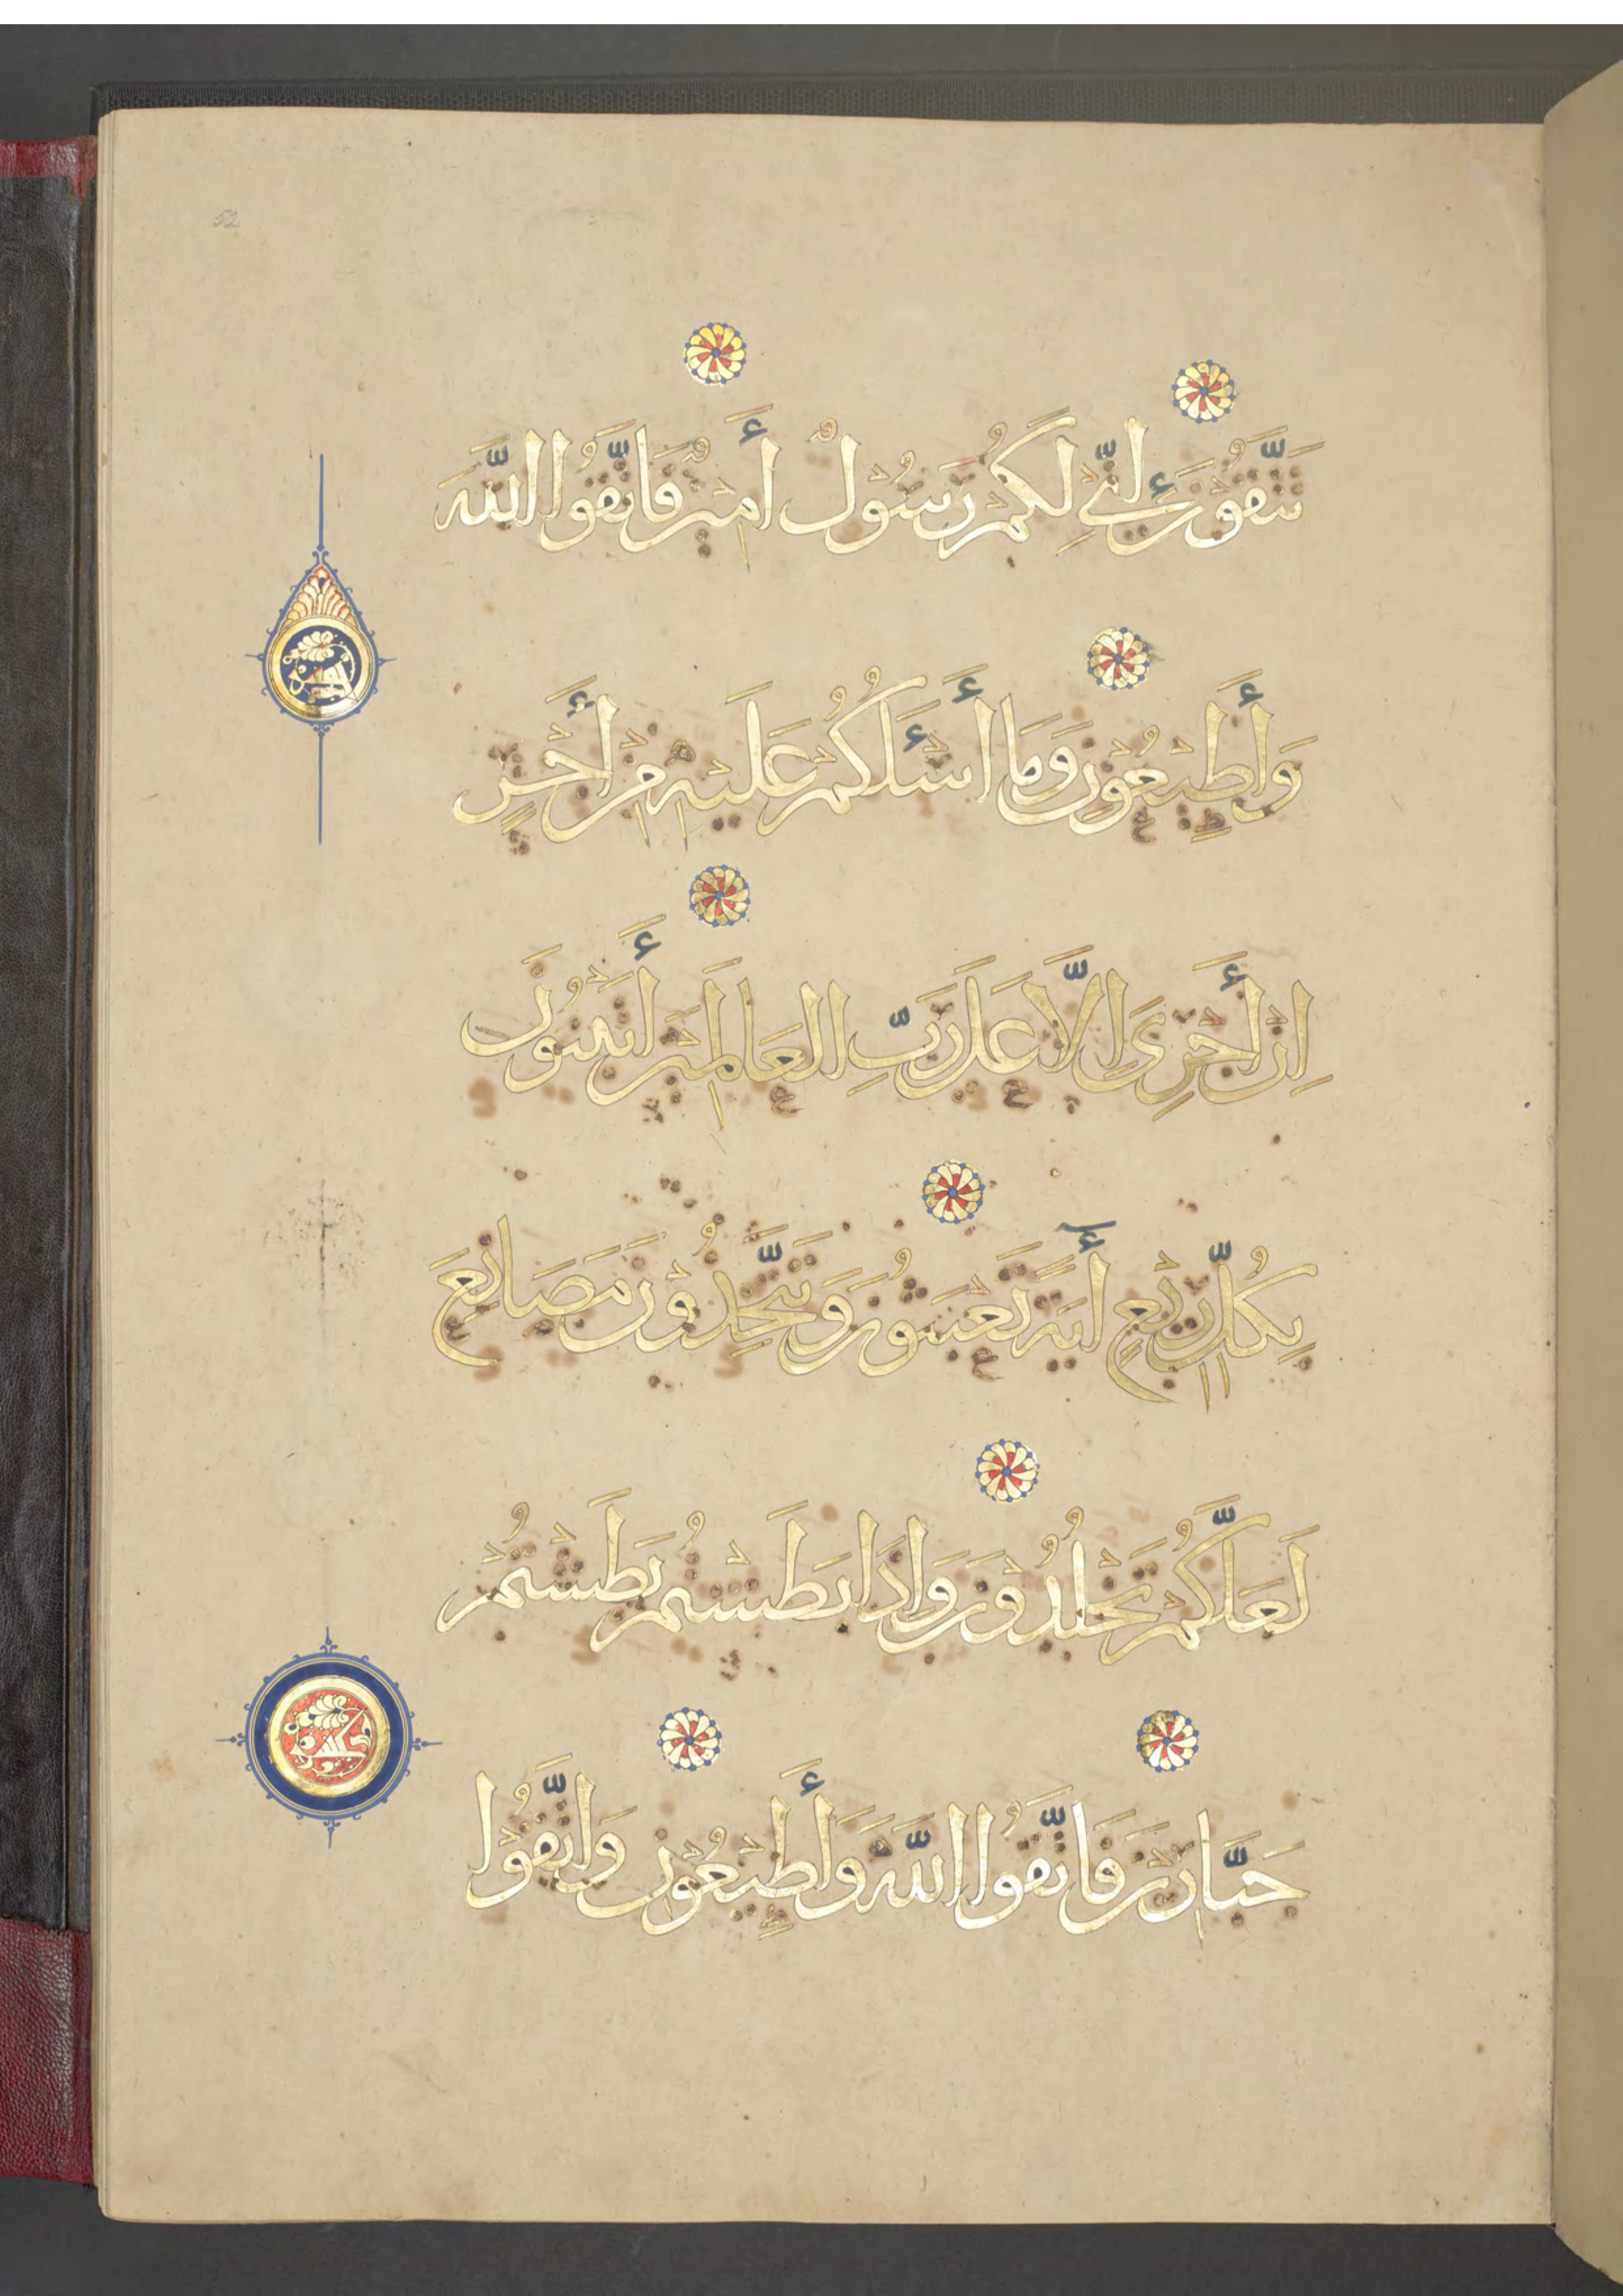 52
تَتَّقُوْنَ إِنِّيْ لَكُمْ رَسُوْلٌ أَمِيْنٌ فَاتَّقُوا اللَّهَ
وَأَطِيْعُوْنِ وَمَا أَسْـَٔلُكُمْ عَلَيْهِ مِنْ أَجْرٍ
اِنْ أَجْرِيَ اِلَّا عَلَى رَبِّ الْعَالَمِيْنَ أَتَبْنُوْنَ
بِكُلِّ رِيْعٍ أٰيَةً تَعْبَثُوْنَ وَتَتَّخِذُوْنَ مَصَانِعَ
لَعَلَّكُمْ تَخْلُدُوْنَ وَاِذَا بَطَشْتُمْ بَطَشْتُمْ
جَبَّارِيْنَ فَاتَّقُوا اللَّهَ وَأَطِيْعُوْنِ وَاتَّقُوْا